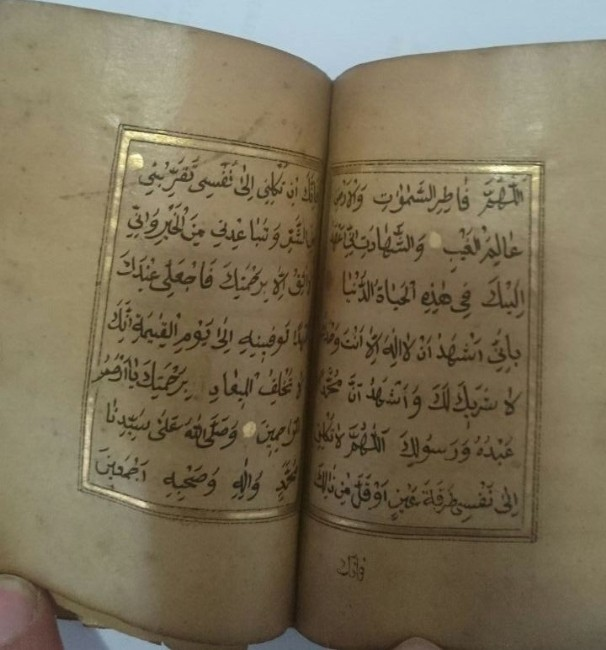 اَللّٰهُمَّ فَاطِرَ السَّمٰوَاتِ وَالْاَرْضِ
عَالِمَ الْغَيْبِ وَالشَّهَادَتِ اِنّٖى اَعْهَدُ
اِلَيْكَ فِى هٰذِهِ الْحَيَاةِ الدُّنْيَا
بِاَنّٖى اَشْهَدُ اَنْ لَا اِلٰهَ اِلَّا اَنْتَ وَحْدَكَ
لَا شَرِيكَ لَكَ وَاَشْهَدُ اَنَّ مُحَمَّدًا
عَبْدُكَ وَرَسُولُكَ اَللّٰهُمَّ لَا تَكِلْنِى
اِلٰى نَفْسِى طَرْفَةَ عَيْنٍ اَوْ اَقَلَّ مِنْ ذٰلِكَ
فَاِنَّكَ
فَاِنَّكَ اَنْ تَكِلْنِى اِلٰى نَفْسِى تُقَرِّبْنِى
مِنَ الشَّرِّ وَتُبَاعِدْنِى مِنَ الْخَيْرِ وَاِنّٖى
لَا اَثِقُ اِلَّا بِرَحْمَتِكَ فَاجْعَلْ لِى عِنْدَكَ
عَهْدًا تُوَفِّينِيهِ اِلٰى يَوْمِ الْقِيٰمَةِ اِنَّكَ
لَا تُخْلِفُ الْمِيعَادِ بِرَحْمَتِكَ يَا اَرْحَمَ
الرَّاحِمِينَ وَصَلَّى اللّٰهُ عَلٰى سَيِّدِنَا
مُحَمَّدٍ وَاٰلِهِ وَصَحْبِهِ اَجْمَعِينَ